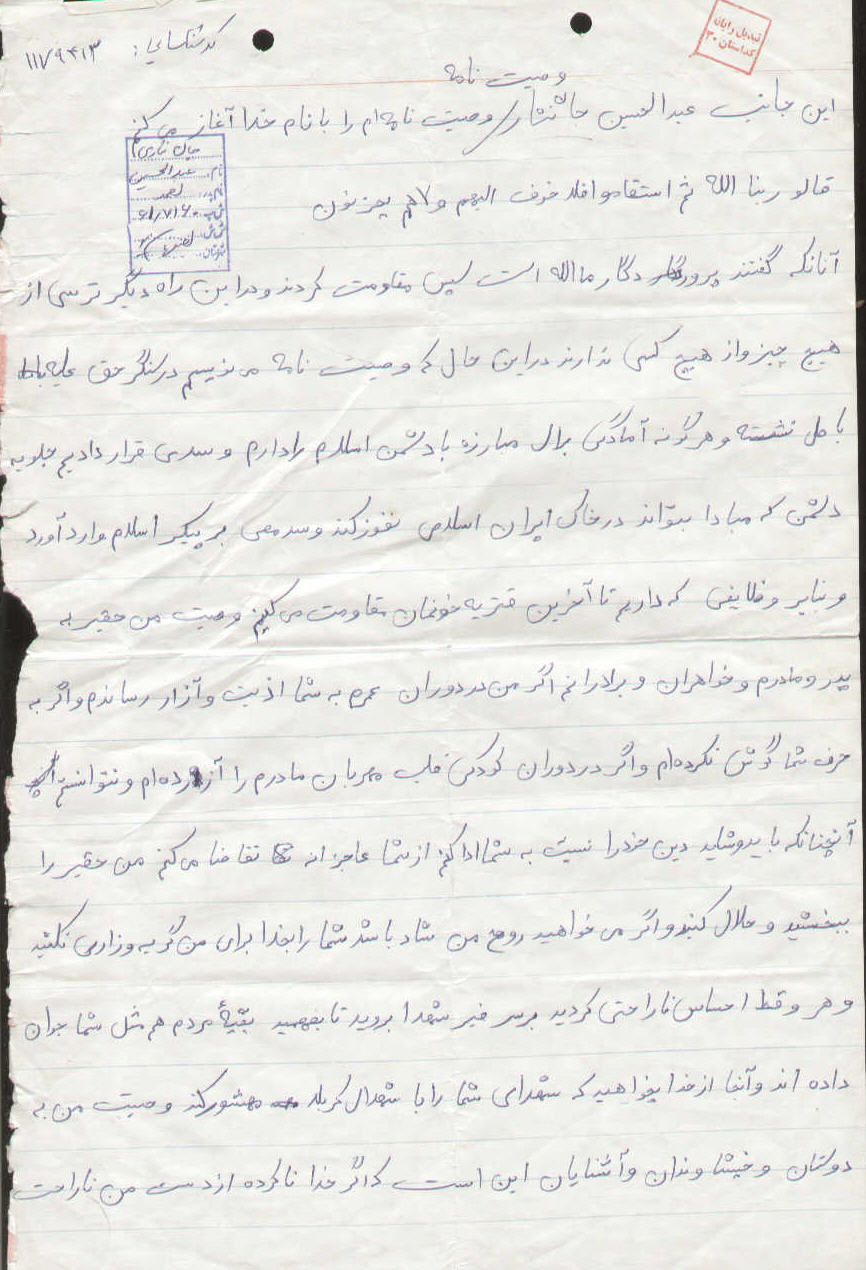 کدشناسایی: ۱۱۷۹۴۱۳
تبدیل رایان
کداستان ۳۰
وصیت نامه
این جانب عبدالحسین جان نثار وصیت نامه ام را با نام خدا آغاز می کنم
جان نثاری
نام: عبدالحسین
نام پدر:
شهرستان:
قالو ربنا الله ثم استقامو افلا خوف الیهم ولا هم یحزنون
آنانکه گفتند پروردگار ما الله است سپس مقاومت کردند و در این راه دیگر ترسی از
هیچ چیز واز هیچ کسی ندارند دراین حال که وصیت نامه می نویسم درسنگر حق علیه
باطل نشسته و هرگونه آمادگی برای مبارزه با دشمن اسلام را دارم و سدی قرار دادیم جلویه
دشمن که مبادا بتواند درخاک ایران اسلامی نفوز کند و سدمعی بر پیکر اسلام وارد آورد
و بنابر وظایفی که داریم تا آخرین قتریه خونمان مقاومت می کنیم وصیت من حقیر به
پدر و مادرم و خواهران و برادرانم اگر من در دوران عمرم به شما اذیت و آزار رساندم واگر به
حرف شما گوش نکرده ام و اگر در دوران کودکی قلب مهربان مادرم را آزرده ام و نتوانستم
آنچنانکه باید و شاید دین خود را نسبت به شما ادا کنم از شما عاجزانه تقاضا می کنم من حقیر را
ببخشید و حلال کنید و اگر می خواهید روح من شاد باشد شما را بخدا برای من گریه وزاری نکنید
و هر وقط احساس ناراحتی کردید بر سر قبر شهدا بروید تا بفهمید بقیهٔ مردم هم مثل شما جوان
داده اند و آنجا از خدا بخواهید که شهدای شما را با شهدای کربلا محشور کند وصیت من به
دوستان و خیشاوندان و آشنایان این است که اگر خدا ناکرده از دست من ناراحت